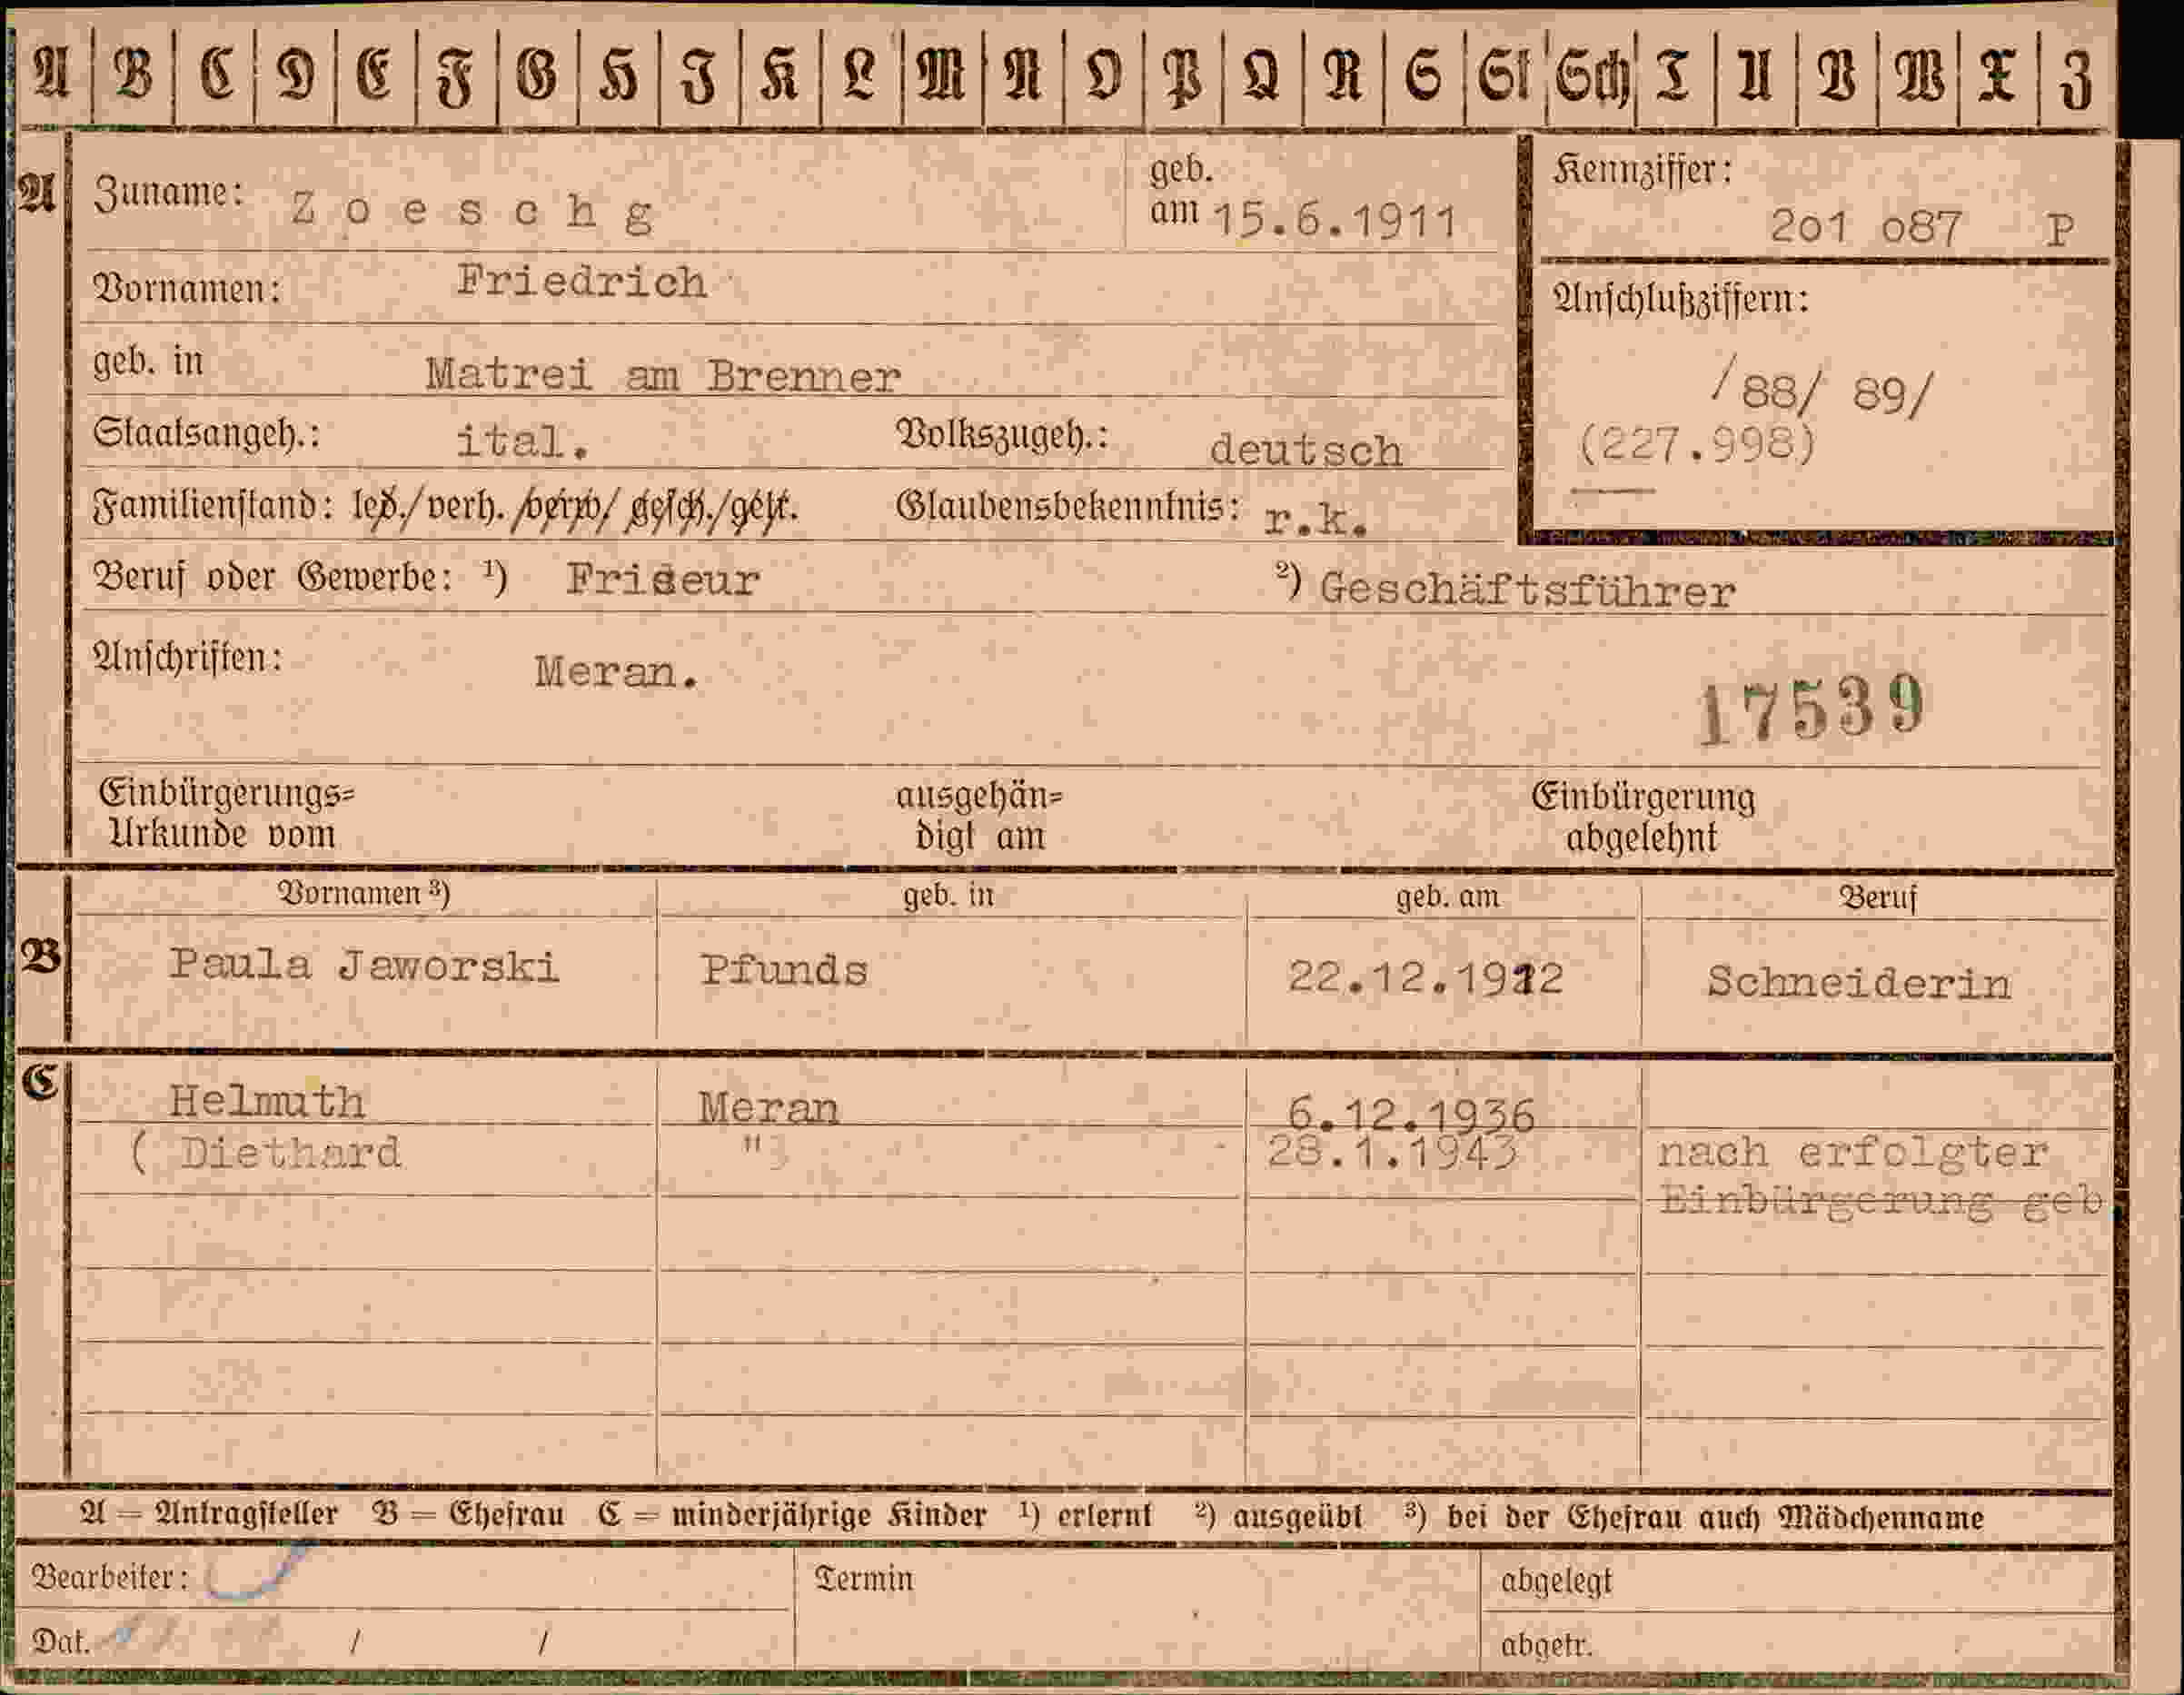 A B C D E F G H J K L M N O P Q R S St Sch T U V W X Z
A Zuname: Zoeschg geb. am 15.6.1911 Kennziffer: 201 087 P
Vornamen: Friedrich Anschlußziffern:
geb. in Matrei am Brenner /88/ 89/
Staatsangeh.: ital. Volkszugeh.: deutsch (227.998)
Familienstand: led./verh./verw/gesch./getr. Glaubensbekenntnis: r.k.
Beruf oder Gewerbe: ¹) Friseur ²) Geschäftsführer
Anschriften: Meran.
17539
Einbürgerungs= ausgehän= Einbürgerung
Urkunde vom digt am abgelehnt
Vornamen ³) geb. in geb. am Beruf
B Paula Jaworski Pfunds 22.12.1912 Schneiderin
C Helmuth Meran 6.12.1936
( Diethard " 28.1.1943 nach erfolgter
Einbürgerung geb
A = Antragsteller B = Ehefrau C = minderjährige Kinder ¹) erlernt ²) ausgeübt ³) bei der Ehefrau auch Mädchenname
Bearbeiter: Termin abgelegt
Dat. / / abgetr.